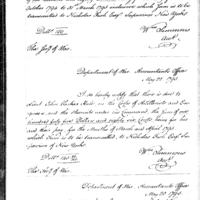 October 1794 to 31st March 1795 inclusive which sum is to be
transmitted to Nicholas Fish Esqr Supervisor New York
Wm Simmons
Acct.
The Secy of War
Department of War Accountants Office
May 20 1795
I do hereby certify that there is due to
Lieut. John the Corps of Artillerists and
and the Recruits under his Command, the Sum of one
hundred forty five Dollars and eighty six Cents being for
and their pay for the Months of March and April 1795
which Sum is to be transmitted to Nicholas Fish Esqr
of New York
Wm Simmons
Acct.
The Secy of War
Department of War Accountants Office
May 20 1795